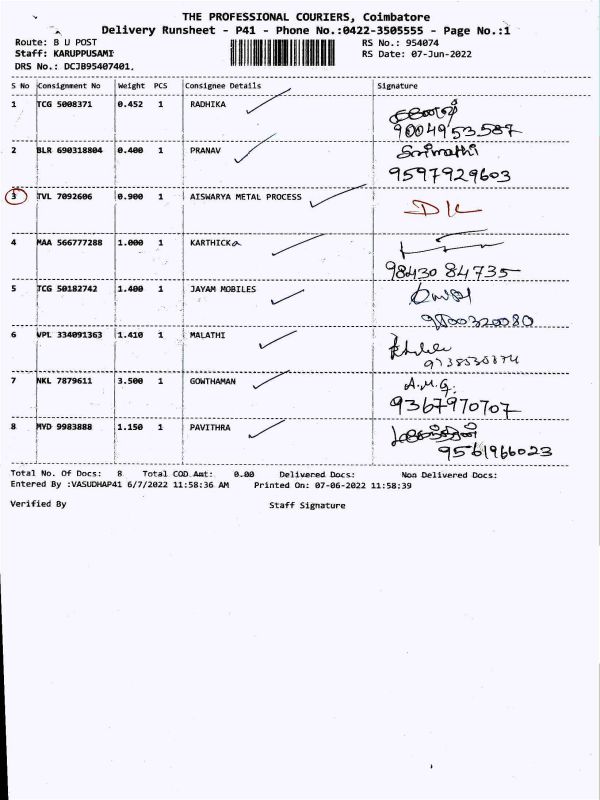 THE PROFESSIONAL COURIERS, Coimbatore
Delivery Runsheet - P41 - Phone No.:0422-3505555 - Page No.:1
Route: B U POST RS No.: 954074
Staff: KARUPPUSAMI RS Date: 07-Jun-2022
DRS No.: DCJB95407401.
S No Consignment No Weight PCS Consignee Details Signature
1 TCG 5008371 0.452 1 RADHIKA
9004953587
2 BLR 690318804 0.400 1 PRANAV Srimathi
9597929603
3 TVL 7092606 0.900 1 AISWARYA METAL PROCESS
4 MAA 566777288 1.000 1 KARTHICKa
98430 84735
5 TCG 50182742 1.400 1 JAYAM MOBILES
9500320080
6 VPL 334091363 1.410 1 MALATHI
7 NKL 7879611 3.500 1 GOWTHAMAN A.M.G.
9367970707
8 MYD 9983888 1.150 1 PAVITHRA
9561966023
Total No. Of Docs: 8 Total COD Amt: 0.00 Delivered Docs: Non Delivered Docs:
Entered By :VASUDHAP41 6/7/2022 11:58:36 AM Printed On: 07-06-2022 11:58:39
Verified By Staff Signature